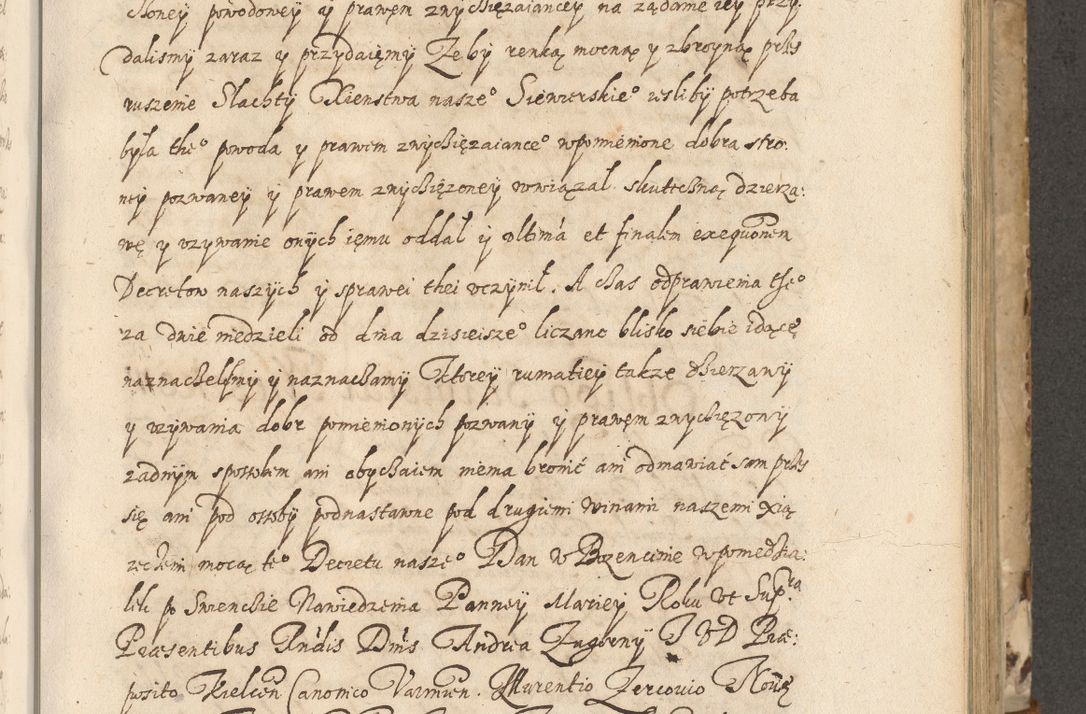 stoney powodowey y prawem zwyciężaiancey na ządanie iey przy:
dalismy zaraz y przydaięmy Ze by renką mocną y zbroyną przes
ruszenie Slachty Xienstwa naszeº Siewierskieº iesliby potrzeba
była theº powoda y prawem zwyciężaianceº wpomienione dobra stro:
ney pozwaney y prawem zwyciężoney wwiązał skuteczną dzierza:
wę y vzywanie onych iemu oddał y vltimã et finalem exequõnem
Decretow naszych y sprawei thei vczynił. A czas odprawienia theº
za dwie niedzieli od dnia dzisieiszeº liczano blisko siebie idącę
naznaczelismy y naznaczamy Ktorey rumatiey także dzierzawy
y vzywania dobr pomienionych pozwany y prawem zwyciężony
zadnym sposobem ani obyczaiem niema bronić ani odmawiać sam przes
się ani pod osoby podnastawne pod drugiemi winami naszemi xią
zęciemi mocą teº Decretu naszeº Dan w Bozencinie wponiedzia:
lek po Swenckie Nawiedzenia Panney Mariey Roku vt Supra
Præsentibus Rñdis Dñis Andrea Zugorny I V D Præ:
posito Kielcen Canonico Varmien. Laurentio Zercovio